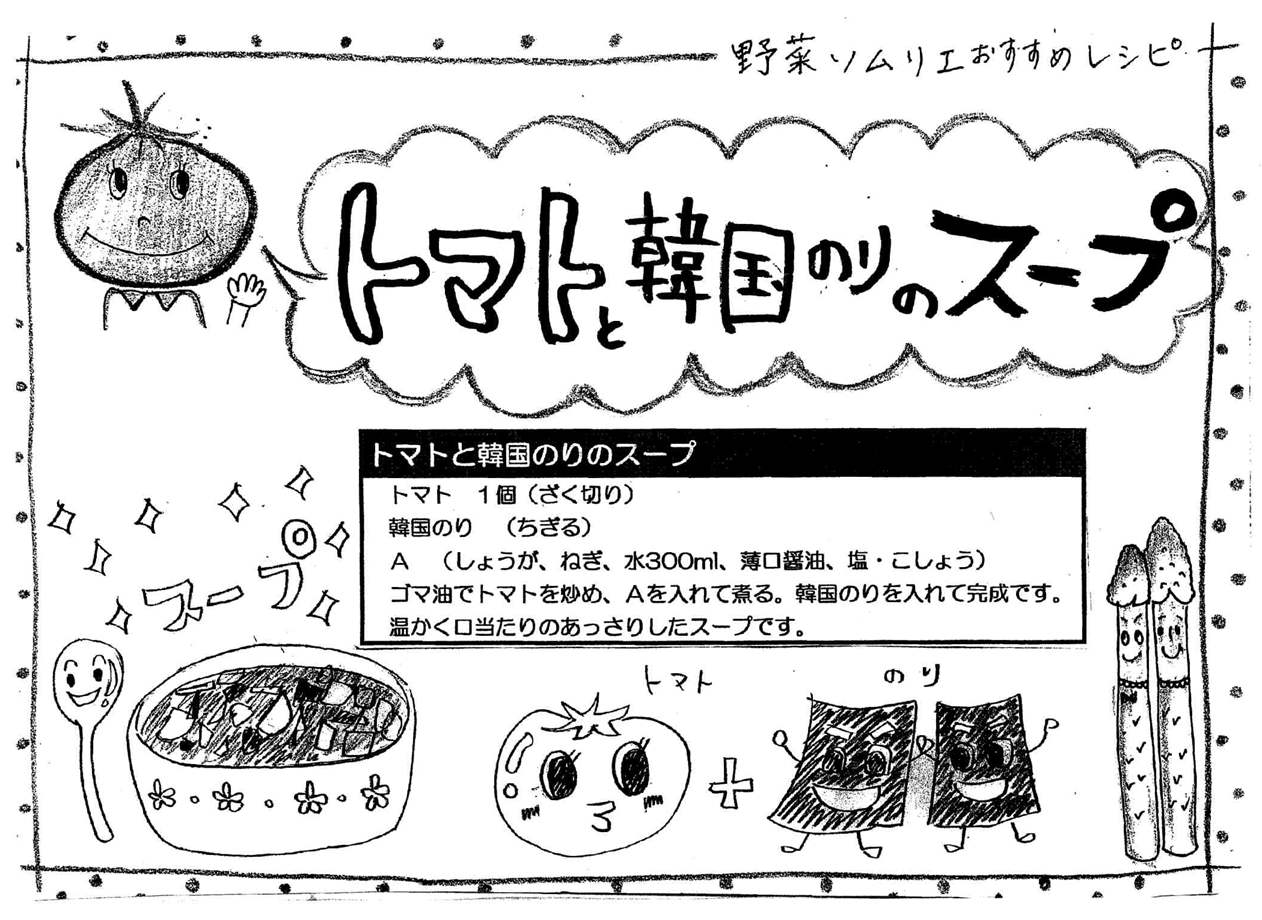 野菜ソムリエおすすめレシピ
トマトと韓国のりのスープ
トマトと韓国のりのスープ
トマト　１個（ざく切り）
韓国のり　（ちぎる）
Ａ　（しょうが、ねぎ、水300ml、薄口醤油、塩・こしょう）
ゴマ油でトマトを炒め、Ａを入れて煮る。韓国のりを入れて完成です。
温かく口当たりのあっさりしたスープです。
スープ
トマト
＋
のり